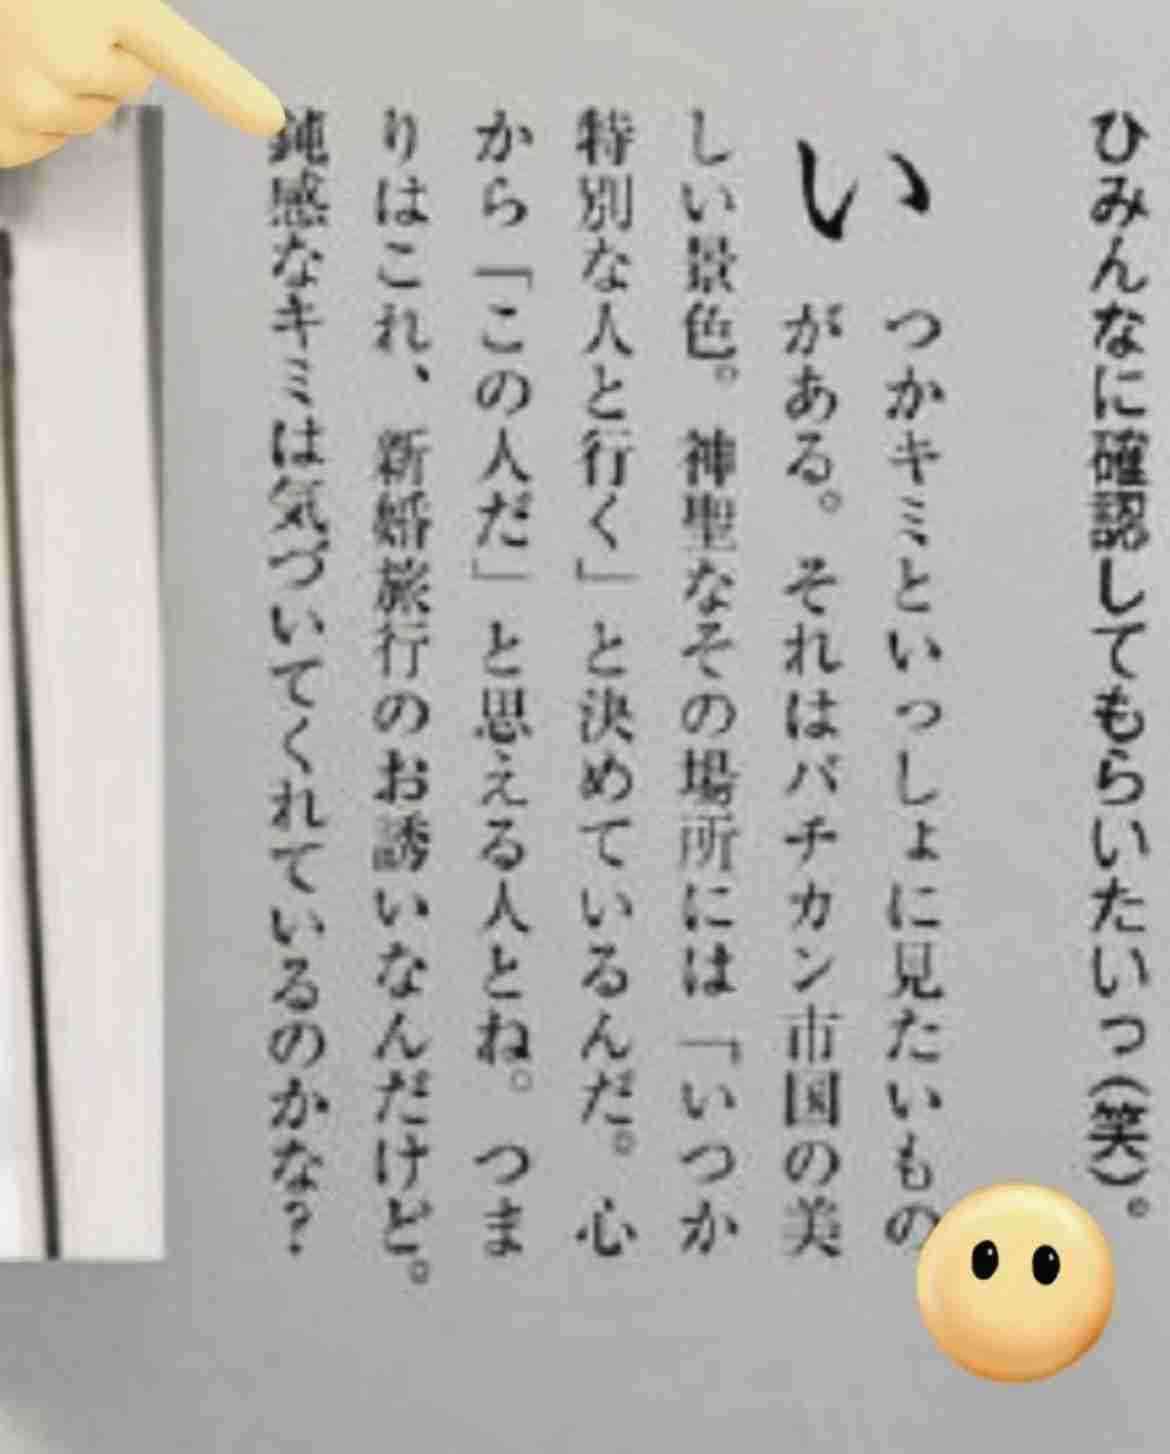 ひみんなに確認してもらいたいっ(笑)。
いつかキミといっしょに見たいもの
がある。それはバチカン市国の美
しい景色。神聖なその場所には「いつか
特別な人と行く」と決めているんだ。心
から「この人だ」と思える人とね。つま
りはこれ、新婚旅行のお誘いなんだけど。
鈍感なキミは気づいてくれているのかな?